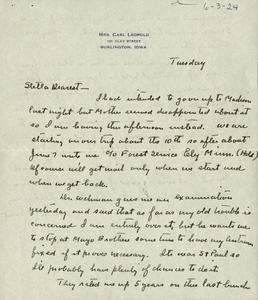 6-3-24
MRS. CARL LEOPOLD
101 CLAY STREET
BURLINGTON, IOWA
Tuesday
Stella Dearest -
I had intended to go up to Madison
last night but Mother seemed disappointed about it
so I am leaving this afternoon instead. We are
starting on our trip about the 10th so after about
June 7 write me c/o Forest Service Ely Minn. (Hold)
Of course will get mail only when we start and
when we get back.
Dr. gave me an examination
yesterday and said that as far as my old trouble is
concerned I am entirely over it, but he wants me
to stop at Mayo Brothers some time to have my antrum
fixed if it proves necessary. It is near St Paul so
I'll probably have plenty of chances to do it.
They rated me up 5 years on this last bunch